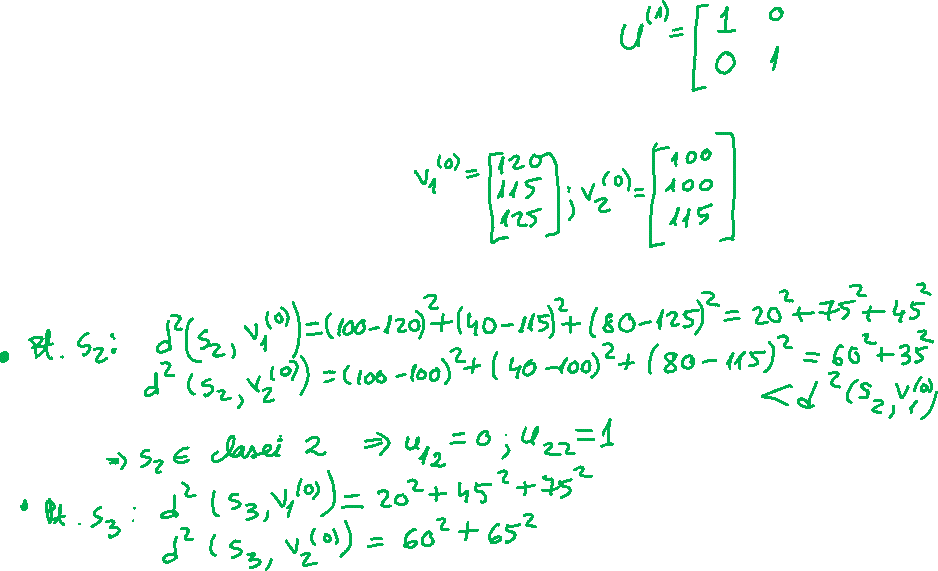 U^(1) = [1 0; 0 1]
v_1^(0) = [120; 115; 125]; v_2^(0) = [100; 100; 115]
• Pt. S_2: d^2(S_2, v_1^(0)) = (100-120)^2 + (40-115)^2 + (80-125)^2 = 20^2 + 75^2 + 45^2
d^2(S_2, v_2^(0)) = (100-100)^2 + (40-100)^2 + (80-115)^2 = 60^2 + 35^2
< d^2(S_2, v_1^(0))
⇒ S_2 ∈ clasei 2 ⇒ u_12 = 0; u_22 = 1
• Pt. S_3: d^2(S_3, v_1^(0)) = 20^2 + 45^2 + 75^2
d^2(S_3, v_2^(0)) = 60^2 + 65^2